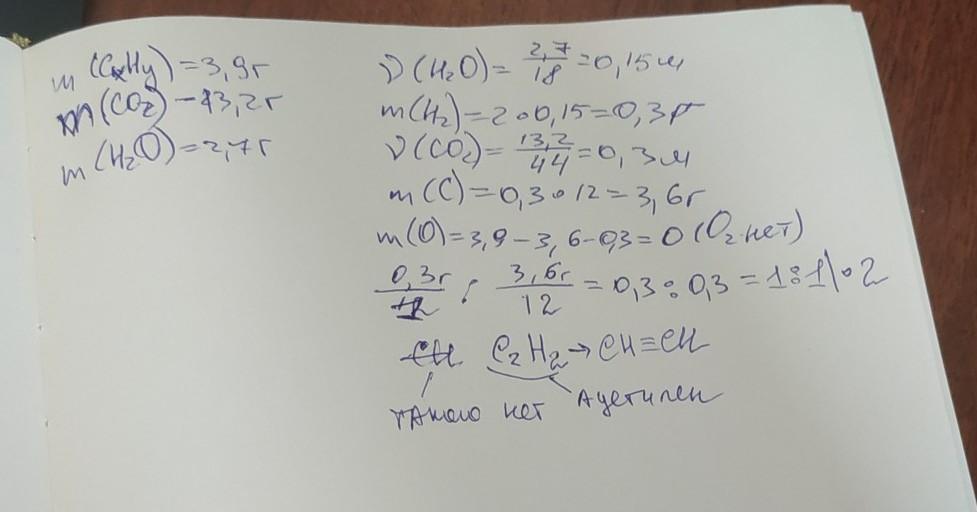 m(CxHy)=3,9г
m(CO2)-13,2г
m(H2O)=2,7г
ν(H2O)=2,7/18=0,15м
m(H2)=2∘0,15=0,3г
ν(CO2)=13,2/44=0,3м
m(C)=0,3∘12=3,6г
m(O)=3,9-3,6-0,3=0(O2 нет)
0,3г/1 : 3,6г/12 = 0,3:0,3=1:1\∘2
CH C2H2→CH≡CH
такого нет Ацетилен